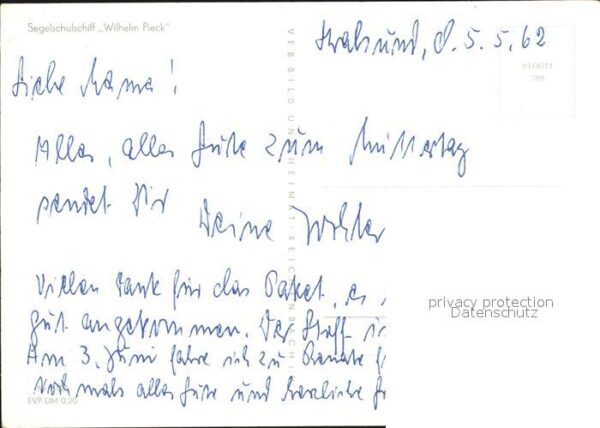 Segelschulschiff „Wilhelm Pieck"
Stralsund, d. 5.5.62
61/4011
786
Liebe Mama!
Alles, alles Gute zum Muttertag
sendet Dir
Deine Tochter
VEB BILD UND HEIMAT REICHENBACH I
Vielen Dank für das Paket, es
gut angekommen. Der Stoff
Am 3. Juni fahre ich zu Renate
Nochmals alles Gute und herzliche
EVP DM 0,20
privacy protection
Datenschutz